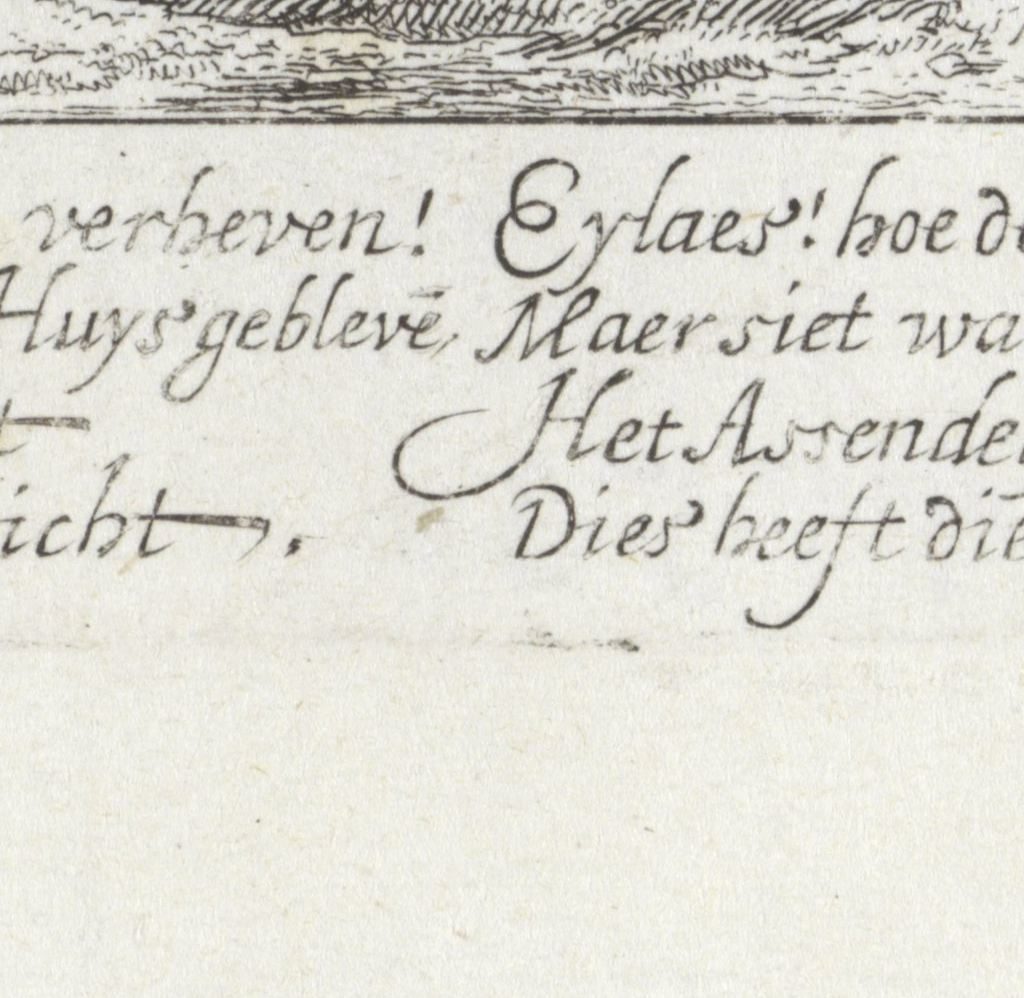 verheven! Eylaes! hoe de
Huys geblevē, Maer siet wa
t Het Assendel
icht. Dies heeft diē